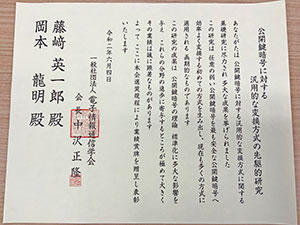 公開鍵暗号に対する
汎用的な変換方式の先駆的研究
あなたがたは公開鍵暗号に対する汎用的な変換方式に関する
基礎研究に尽力され多大な成果を挙げられました
この研究は任意の弱い公開鍵暗号を最も安全な公開鍵暗号へ
効率よく変換する初めての方式を生み出し現在も多くの方式に
適用される画期的なものであります
この研究の成果は公開鍵暗号の理論標準化に多大な影響を
与えこれらの分野の進歩に寄与するところが極めて大きく
その業績は誠に顕著なものがあります
よってここに本会選奨規程により業績賞牌を贈呈し表彰
いたします
令和二年六月四日
一般社団法人電子情報通信学会
会長 中沢正隆
藤﨑英一郎殿
岡本龍明殿